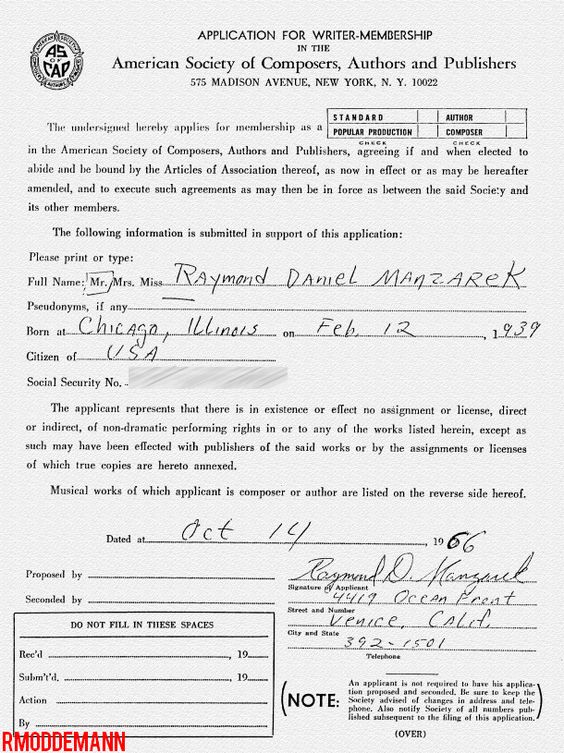 AMERICAN SOCIETY
AS
OF
CAP
AUTHORS
APPLICATION FOR WRITER-MEMBERSHIP
IN THE
American Society of Composers, Authors and Publishers
575 MADISON AVENUE, NEW YORK, N. Y. 10022
STANDARD AUTHOR
The undersigned hereby applies for membership as a POPULAR PRODUCTION COMPOSER
CHECK CHECK
in the American Society of Composers, Authors and Publishers, agreeing if and when elected to
abide and be bound by the Articles of Association thereof, as now in effect or as may be hereafter
amended, and to execute such agreements as may then be in force as between the said Society and
its other members.
The following information is submitted in support of this application:
Please print or type:
Full Name: Mr. Mrs. Miss Raymond Daniel Manzarek
Pseudonyms, if any
Born at Chicago, Illinois on Feb, 12, 1939
Citizen of USA
Social Security No.
The applicant represents that there is in existence or effect no assignment or license, direct
or indirect, of non-dramatic performing rights in or to any of the works listed herein, except as
such may have been effected with publishers of the said works or by the assignments or licenses
of which true copies are hereto annexed.
Musical works of which applicant is composer or author are listed on the reverse side hereof.
Dated at Oct 14, 1966
Proposed by Raymond D. Manzarek
Signature of Applicant
Seconded by 4419 Ocean Front
Street and Number
Venice, Calif.
City and State
392-1501
Telephone
DO NOT FILL IN THESE SPACES
Rec'd , 19
Subm't'd. , 19
Action
By
(NOTE: An applicant is not required to have his application
tion proposed and seconded. Be sure to keep the
Society advised of changes in address and tele-
phone. Also notify Society of all numbers pub-
lished subsequent to the filing of this application.)
(OVER)
RMODDEMANN